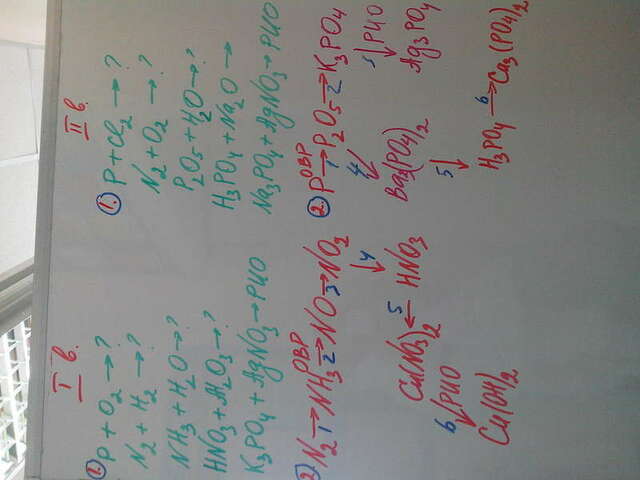 I в.
1. P + O2 → ?
N2 + H2 → ?
NH3 + H2O → ?
HNO3 + Al2O3 → ?
K3PO4 + AgNO3 → РИО
2) N2 →1 NH3 →2 ОВР NO →3 NO2
↓ 4
Cu(NO3)2 ←5 HNO3
6 ↓ РИО
Cu(OH)2
II в.
1. P + Cl2 → ?
N2 + O2 → ?
P2O5 + H2O → ?
H3PO4 + Na2O →
Na3PO4 + AgNO3 → РИО
2. P →1 ОВР P2O5 →2 K3PO4
4 ↓ 3 ↓ РИО
Ba3(PO4)2 Ag3PO4
5 ↓
H3PO4 →6 Ca3(PO4)2